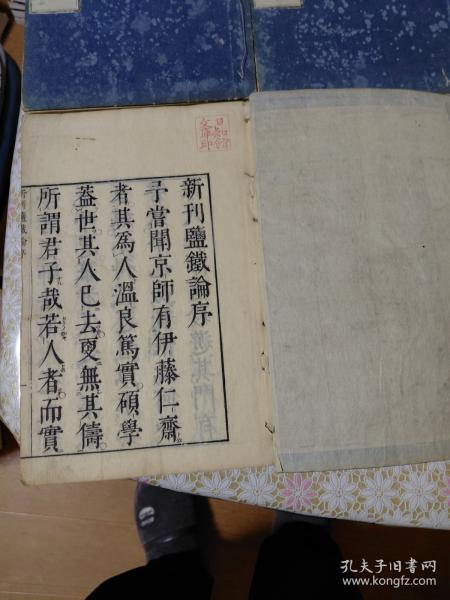 新刊鹽鐵論序
予嘗聞京師有伊藤仁齋
者其爲人溫良篤實碩學
蓋世其人已去更無其儔
所謂君子哉若人者而實
新刊鹽鐵論序
孔夫子旧书网
www.kongfz.com